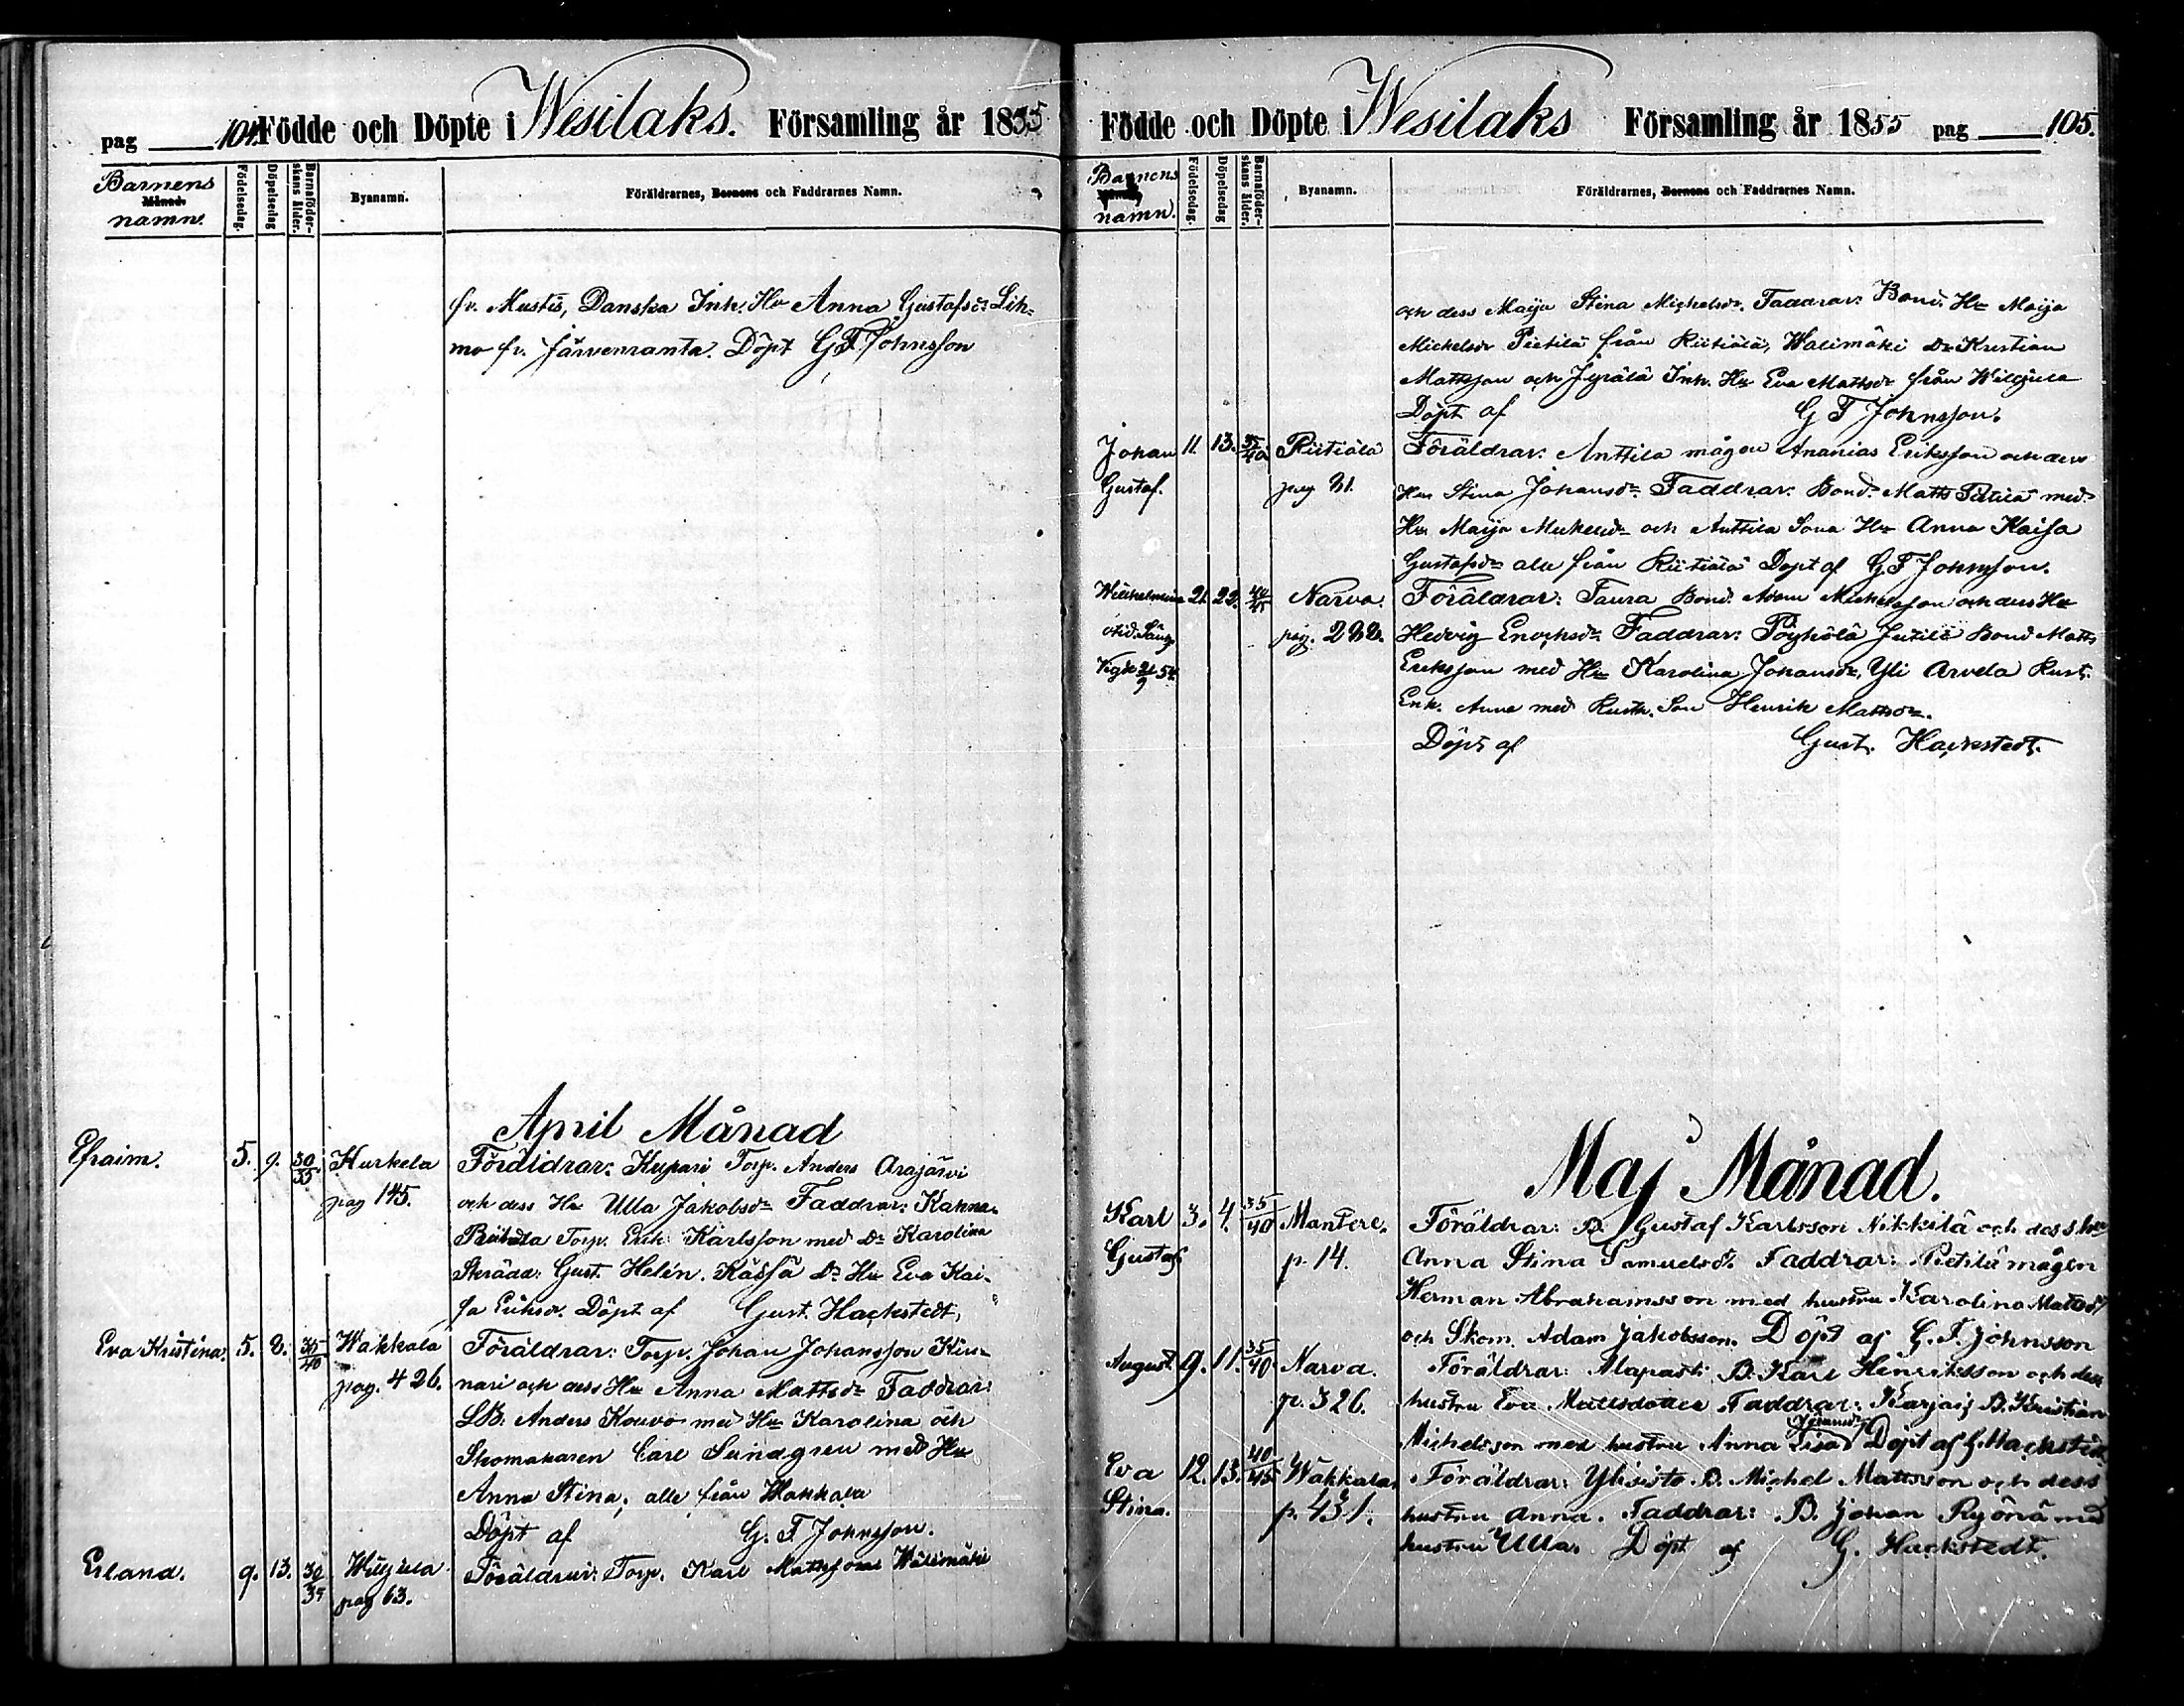 pag 104. Födde och Döpte i Wesilaks. Församling år 1855
Barnens
Månad.
namn.
Födelsedag.
Döpelsedag
Barnaföderskans ålder.
Byanamn.
Föräldrarnes, Barnens och Faddrarnes Namn.
fr. Mustis, Danska Inh. Hu Anna Gustafsdr Leh-
mo fr. Järvenranta. Döpt G F Johnsson
April Månad
Efraim. 5. 9. 30/35 Hurkela Föräldrar: Kupari Torp. Anders Arajärvi
pag 145. och dess Hu Ulla Jakobsdr Faddrar: Kahna-
Torp. Erik Karlsson med Dr Karolina
Skrädd. Gust. Helén. Dr Hu Eva Kai-
sa Eriksdr. Döpt af Gust. Hackstedt,
Eva Kristina. 5. 8. 35/40 Wakkala Föräldrar: Torp. Johan Johansson Kin-
pag. 426. nari och dess Hu Anna Mattsdr Faddrar:
LB. Anders Kouvo med Hu Karolina och
Skomakaren Carl Sundgren med Hu
Anna Stina, alla från Wakkala
Döpt af G. F Johnsson.
Erland. 9. 13. 30/35 Willjula Föräldrar: Torp. Karl Mattsson Wälimäki
pag 63.
Födde och Döpte i Wesilaks Församling år 1855 pag 105.
Barnens
namn.
Födelsedag.
Döpelsedag
Barnaföderskans ålder.
Byanamn.
Föräldrarnes, Barnens och Faddrarnes Namn.
och dess Maija Stina Michelsdr. Faddrar: Bond. Hu Maija
Michelsdr Pietilä från Riitiälä, Walimäki Dr Kristian
Mattsson och Jyrälä Inh. Hu Eva Mattsdr från Wiljula
Döpt af G F Johnsson.
Johan 11. 13. 35/40 Riitiälä Föräldrar: Anttila mågen Ananias Eriksson och dess
Gustaf. pag 81. Hu Stina Johansdr Faddrar: Bond. Matts Pietilä med
Hu Maija Mickelsdr och Anttila Sona Hu Anna Kaisa
Gustafsdr alla från Riitiälä Döpt af G. F Johnsson.
Wilhelmina 21. 22. 40/45 Narva. Föräldrar: Taura Bond. Adam Michelsson och dess Hu
pag. 288. Hedvig Enochsdr Faddrar: Pöyhölä Bond Matts
Vigde 21/9 54. Eriksson med Hu Karolina Johansdr, Yli Arvela Rust.
Enk. Anna med Rusth. Son Henrik Mattsdr.
Döpt af Gust. Hackstedt.
Maj Månad.
Karl 3. 4. 35/40 Mantere. Föräldrar: B. Gustaf Karlsson Nikkilä och dess hu
Gustaf p. 14. Anna Stina Samuelsdr. Faddrar: Pietilä mågen
Herman Abrahamsson med hustru Karolina Mattsdr
och Skom. Adam Jakobsson. Döpt af G. F. Johnsson
August. 9. 11. 35/40 Narva. Föräldrar: Alapasti B. Karl Henriksson och dess
p. 326. hustru Eva Mattsdotter Faddrar: B. Kristian
Michelsson med hustru Anna Lisa Johansdr Döpt af G. Hackstedt
Eva 12. 13. 40/45 Wakkala, Föräldrar: Ylisisto B. Michel Mattsson och dess
Stina. p. 431. hustru Anna. Faddrar: B. Johan Ryönä med
hustru Ulla. Döpt af G. Hackstedt.